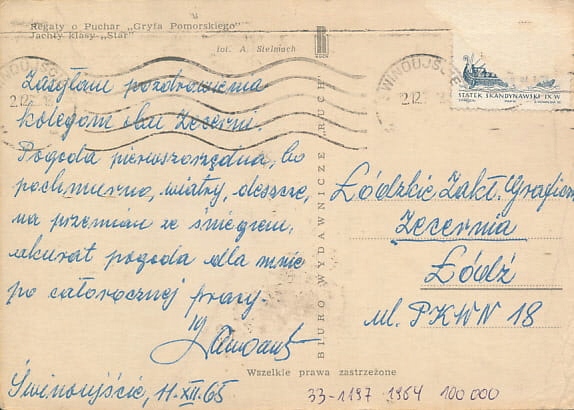 Regaty o Puchar „Gryfa Pomorskiego"
Jachty klasy „Star"
fot. A. Stelmach
RUCH
ŚWINOUJŚCIE
2.12.
ŚWINOUJŚCIE
2.12.
STATEK SKANDYNAWSKI IX W
Zasyłam pozdrowienia
kolegom obu Zecerni.
Pogoda pierwszorzędna, bo
pochmurno, wiatry, deszcze,
na przemian ze śniegiem,
akurat pogoda dla mnie
po całorocznej pracy.
Świnoujście, 11.XII.65
BIURO WYDAWNICZE „RUCH"
Łódzkie Zakł. Graficzn
Zecernia
Łódź
ul. PKWN 18
Wszelkie prawa zastrzeżone
33-1197 1964 100 000